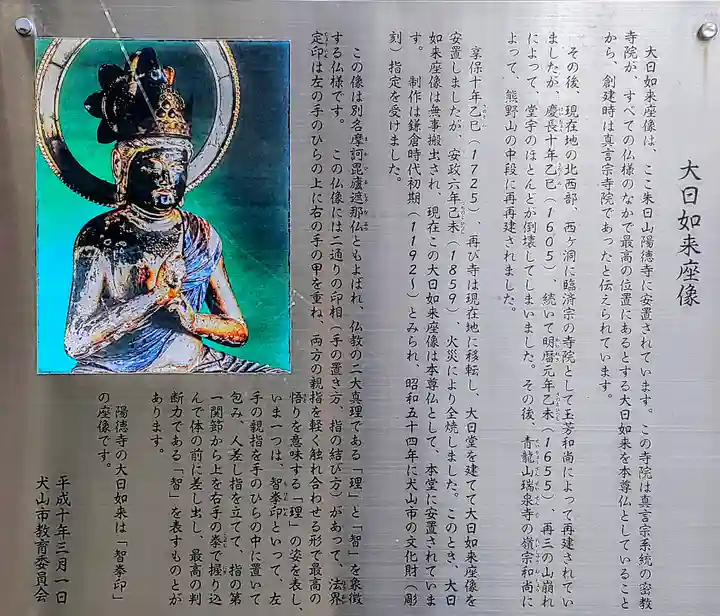 大日如来座像
大日如来座像は、ここ朱日山陽徳寺に安置されています。この寺院は真言宗系統の密教
寺院が、すべての仏様のなかで最高の位置にあるとする大日如来を本尊仏としていること
から、創建時は真言宗寺院であったと伝えられています。
その後、現在地の北西部、西ヶ洞に臨済宗の寺院として玉芳和尚によって再建されてい
ましたが、慶長十年乙巳(1605)、続いて明暦元年乙未(1655)、再三の山崩れ
によって、堂宇のほとんどが倒壊してしまいました。その後、青龍山瑞泉寺の嶺宗和尚に
よって、熊野山の中段に再再建されました。
享保十年乙巳(1725)、再び寺は現在地に移転し、大日堂を建てて大日如来座像を
安置しましたが、安政六年乙未(1859)、火災により全焼しました。このとき、大日
如来座像は無事搬出され、現在この大日如来座像は本尊仏として、本堂に安置されていま
す。 制作は鎌倉時代初期(1192〜)とみられ、昭和五十四年に犬山市の文化財(彫
刻)指定を受けました。
この像は別名摩訶毘廬遮那仏ともよばれ、仏教の二大真理である「理」と「智」を象徴
する仏様です。 この仏像には二通りの印相(手の置き方、指の結び方)があって、法界
定印は左の手のひらの上に右の手の甲を重ね、両方の親指を軽く触れ合わせる形で最高の
悟りを意味する「理」の姿を表し、
いま一つは、智拳印といって、左
手の親指を手のひらの中に置いて
包み、人差し指を立てて、指の第
一関節から上を右手の拳で握り込
んで体の前に差し出し、最高の判
断力である「智」を表すものとが
あります。
陽徳寺の大日如来は「智拳印」
の座像です。
平成十年三月一日
犬山市教育委員会